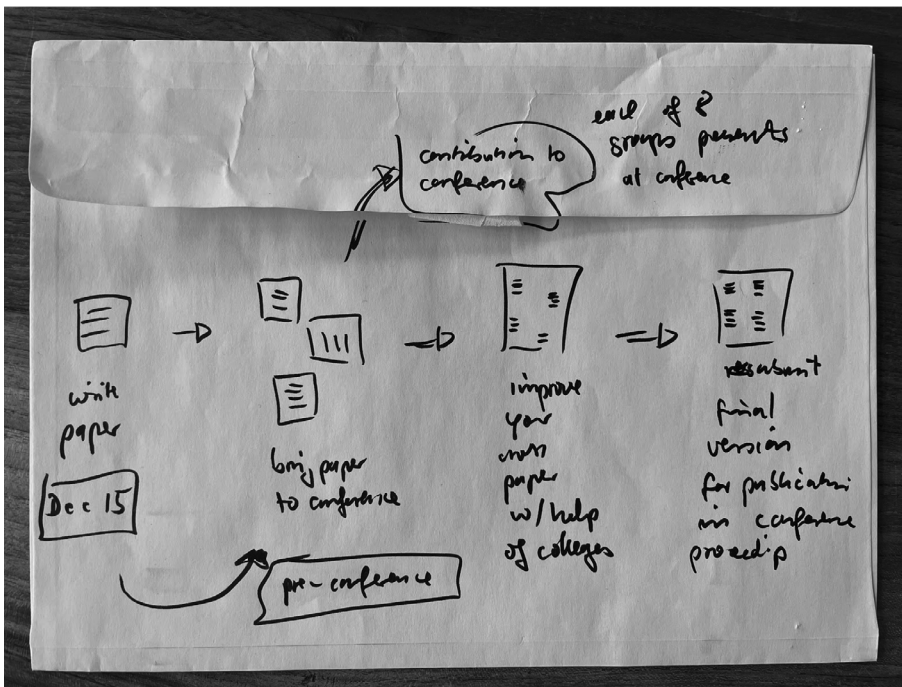 contribution to
conference
each of 8
groups presents
at conference
write
paper
Dec 15
bring paper
to conference
pre-conference
improve
your
own
paper
w/help
of colleges
resubmit
final
version
for publication
in conference
proceedip